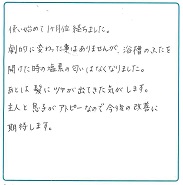 使い始めて1ヶ月位経ちました。
劇的に変わった事はありませんが、浴槽のふたを
開けた時の塩素の匂いはなくなりました。
あとは髪にツヤが出てきた気がします。
主人と息子がアトピーなので今後の改善に
期待します。